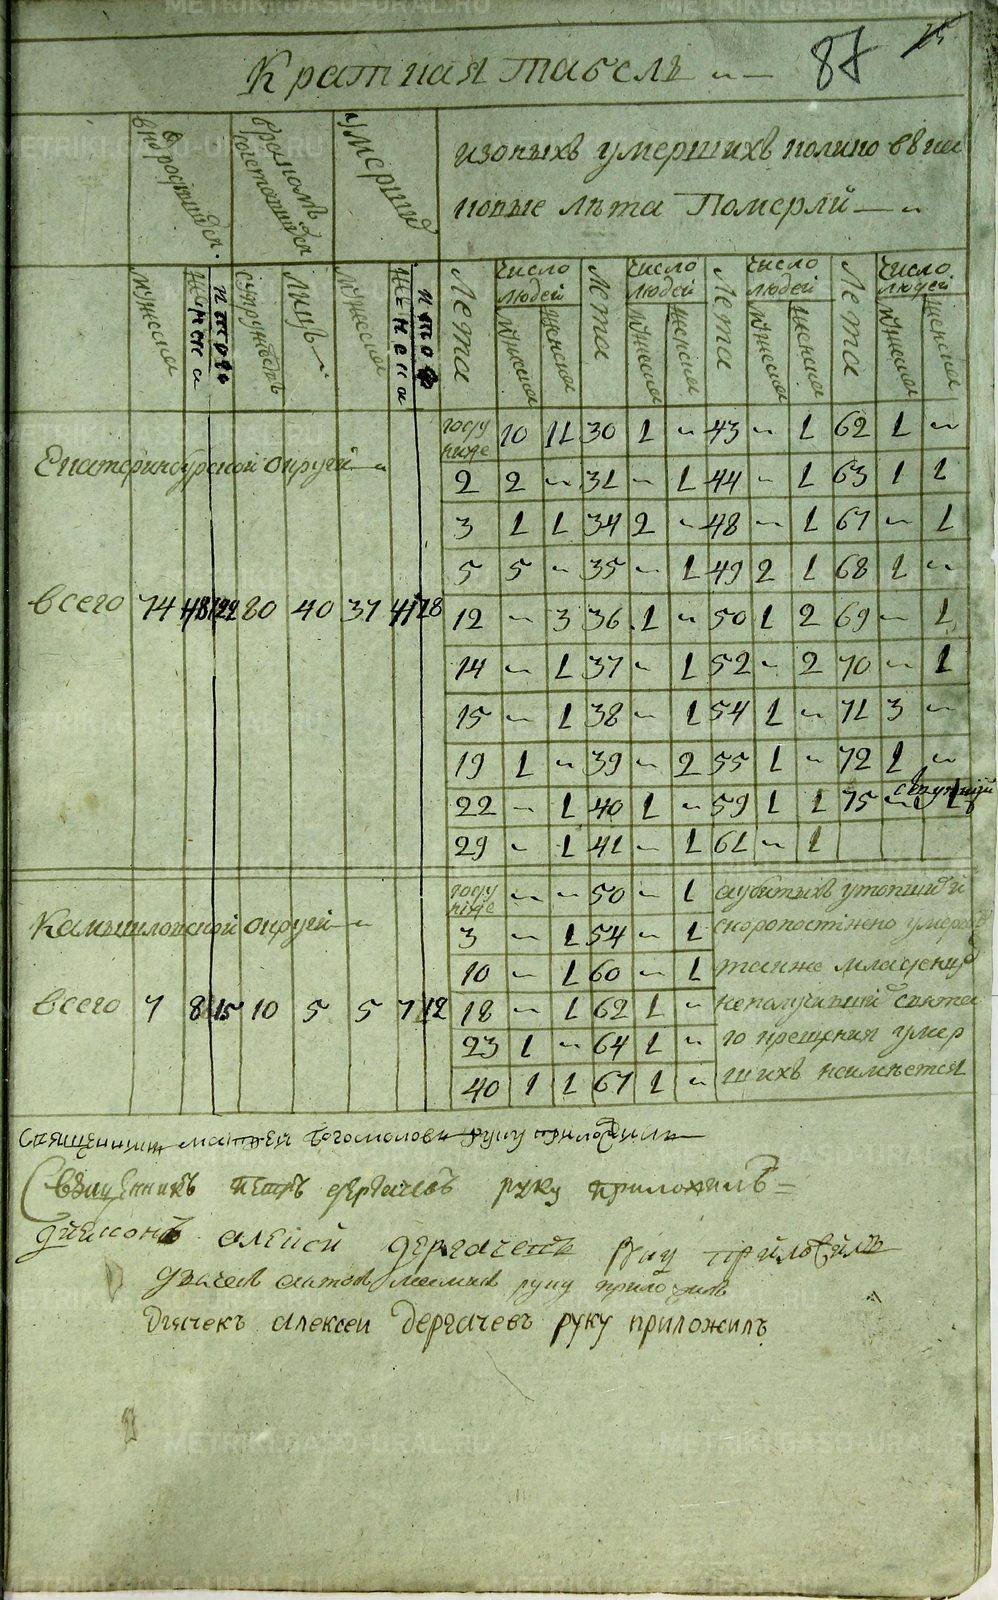 Краткая табель
87
75
внов родившихся
браком сочетавшихся
умерших
изоныхъ умершихъ колико въ каковые лѣта Померли
мужеска
женска
итого
супружествъ
лицъ
мужеска
женска
итого
Лета
число людей
мужеска
женска
Лета
число людей
мужеска
женска
Лета
число людей
мужеска
женска
Лета
число людей
мужеска
женска
Екатеринбурской округи
году ниже 10 11 30 1 ~ 43 ~ 1 62 1 ~
2 2 ~ 31 ~ 1 44 ~ 1 63 1 1
3 1 1 34 2 ~ 48 ~ 1 67 ~ 1
5 5 ~ 35 ~ 1 49 2 1 68 1 ~
всего 74 48 122 80 40 37 41 78 12 ~ 3 36 1 ~ 50 1 2 69 ~ 1
14 ~ 1 37 ~ 1 52 ~ 2 70 ~ 1
15 ~ 1 38 ~ 1 54 1 ~ 71 3 ~
19 1 ~ 39 ~ 2 55 1 ~ 72 1 ~
22 ~ 1 40 1 ~ 59 1 1 75 ~ 1
29 ~ 1 41 ~ 1 61 ~ 1
Камышловской округи
году ниже ~ ~ 50 ~ 1
3 ~ 1 54 ~ 1
10 ~ 1 60 ~ 1
всего 7 8 15 10 5 5 7 12 18 ~ 1 62 1 ~
23 1 ~ 64 1 ~
40 1 1 67 1 ~
аубитыхъ утопшихъ и
скоропостижно умерших
также младенцовъ
неполучивший святаго
крещения умерших
неимѣется
Священникъ Богомоловъ руку приложилъ
Священникъ Петръ Дергачевъ руку приложилъ
Диаконъ алексей дергачевъ руку приложилъ
дьячекъ руку приложилъ
Дьячекъ алексеи дергачевъ руку приложилъ
METRIKI.GASO-URAL.RU